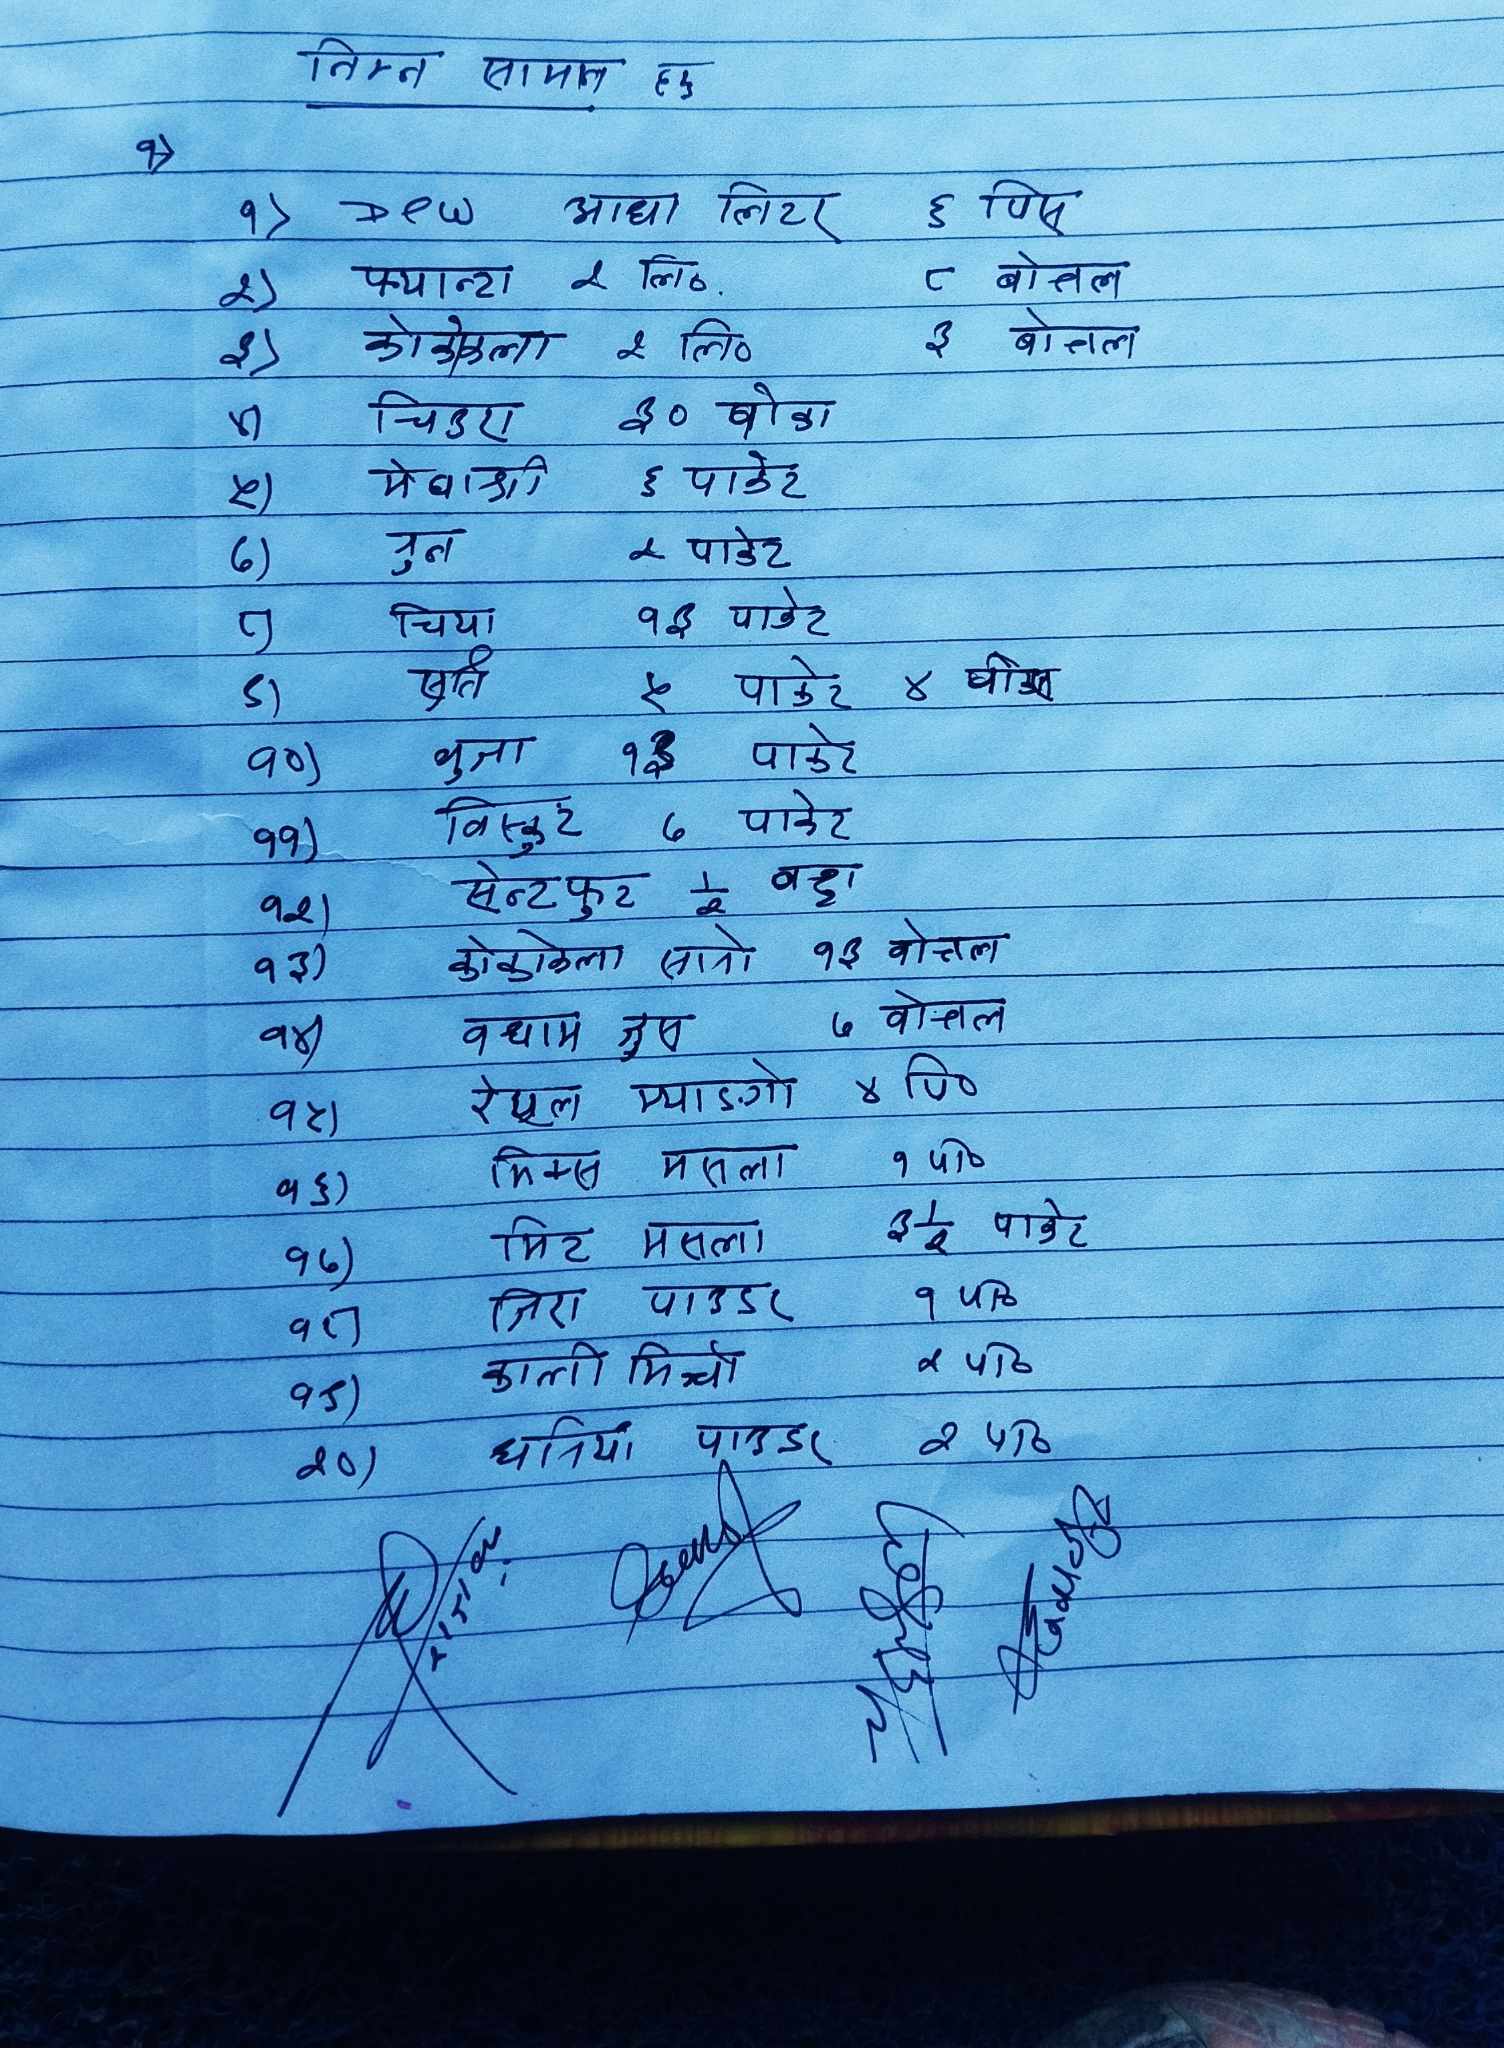 निम्न सामान हरु
१)
१) Dew आधा लिटर ६ पिस
२) फ्यान्टा २ लि०. ८ बोत्तल
३) कोकोकला २ लि० ३ बोत्तल
४) चिउरा ३० बोका
५) मेवाश्री ६ पाकेट
७) नुन २ पाकेट
८) चिया १३ पाकेट
९) सुर्ति ५ पाकेट ४ पोका
१०) भुजा १३ पाकेट
११) विस्कुट ७ पाकेट
१२) सेन्टफ्रुट १/२ बट्टा
१३) कोकाकेला सानो १३ बोत्तल
१४) बधाम जुस ७ बोत्तल
१५) रेयल म्याङगो ४ पि०
१६) मिम्स मसला १ पा०
१७) मिट मसला ३ १/२ पाकेट
१८) जिरा पाउडर १ पा०
१९) काली मिर्चो २ पा०
२०) धनिया पाउडर २ पा०